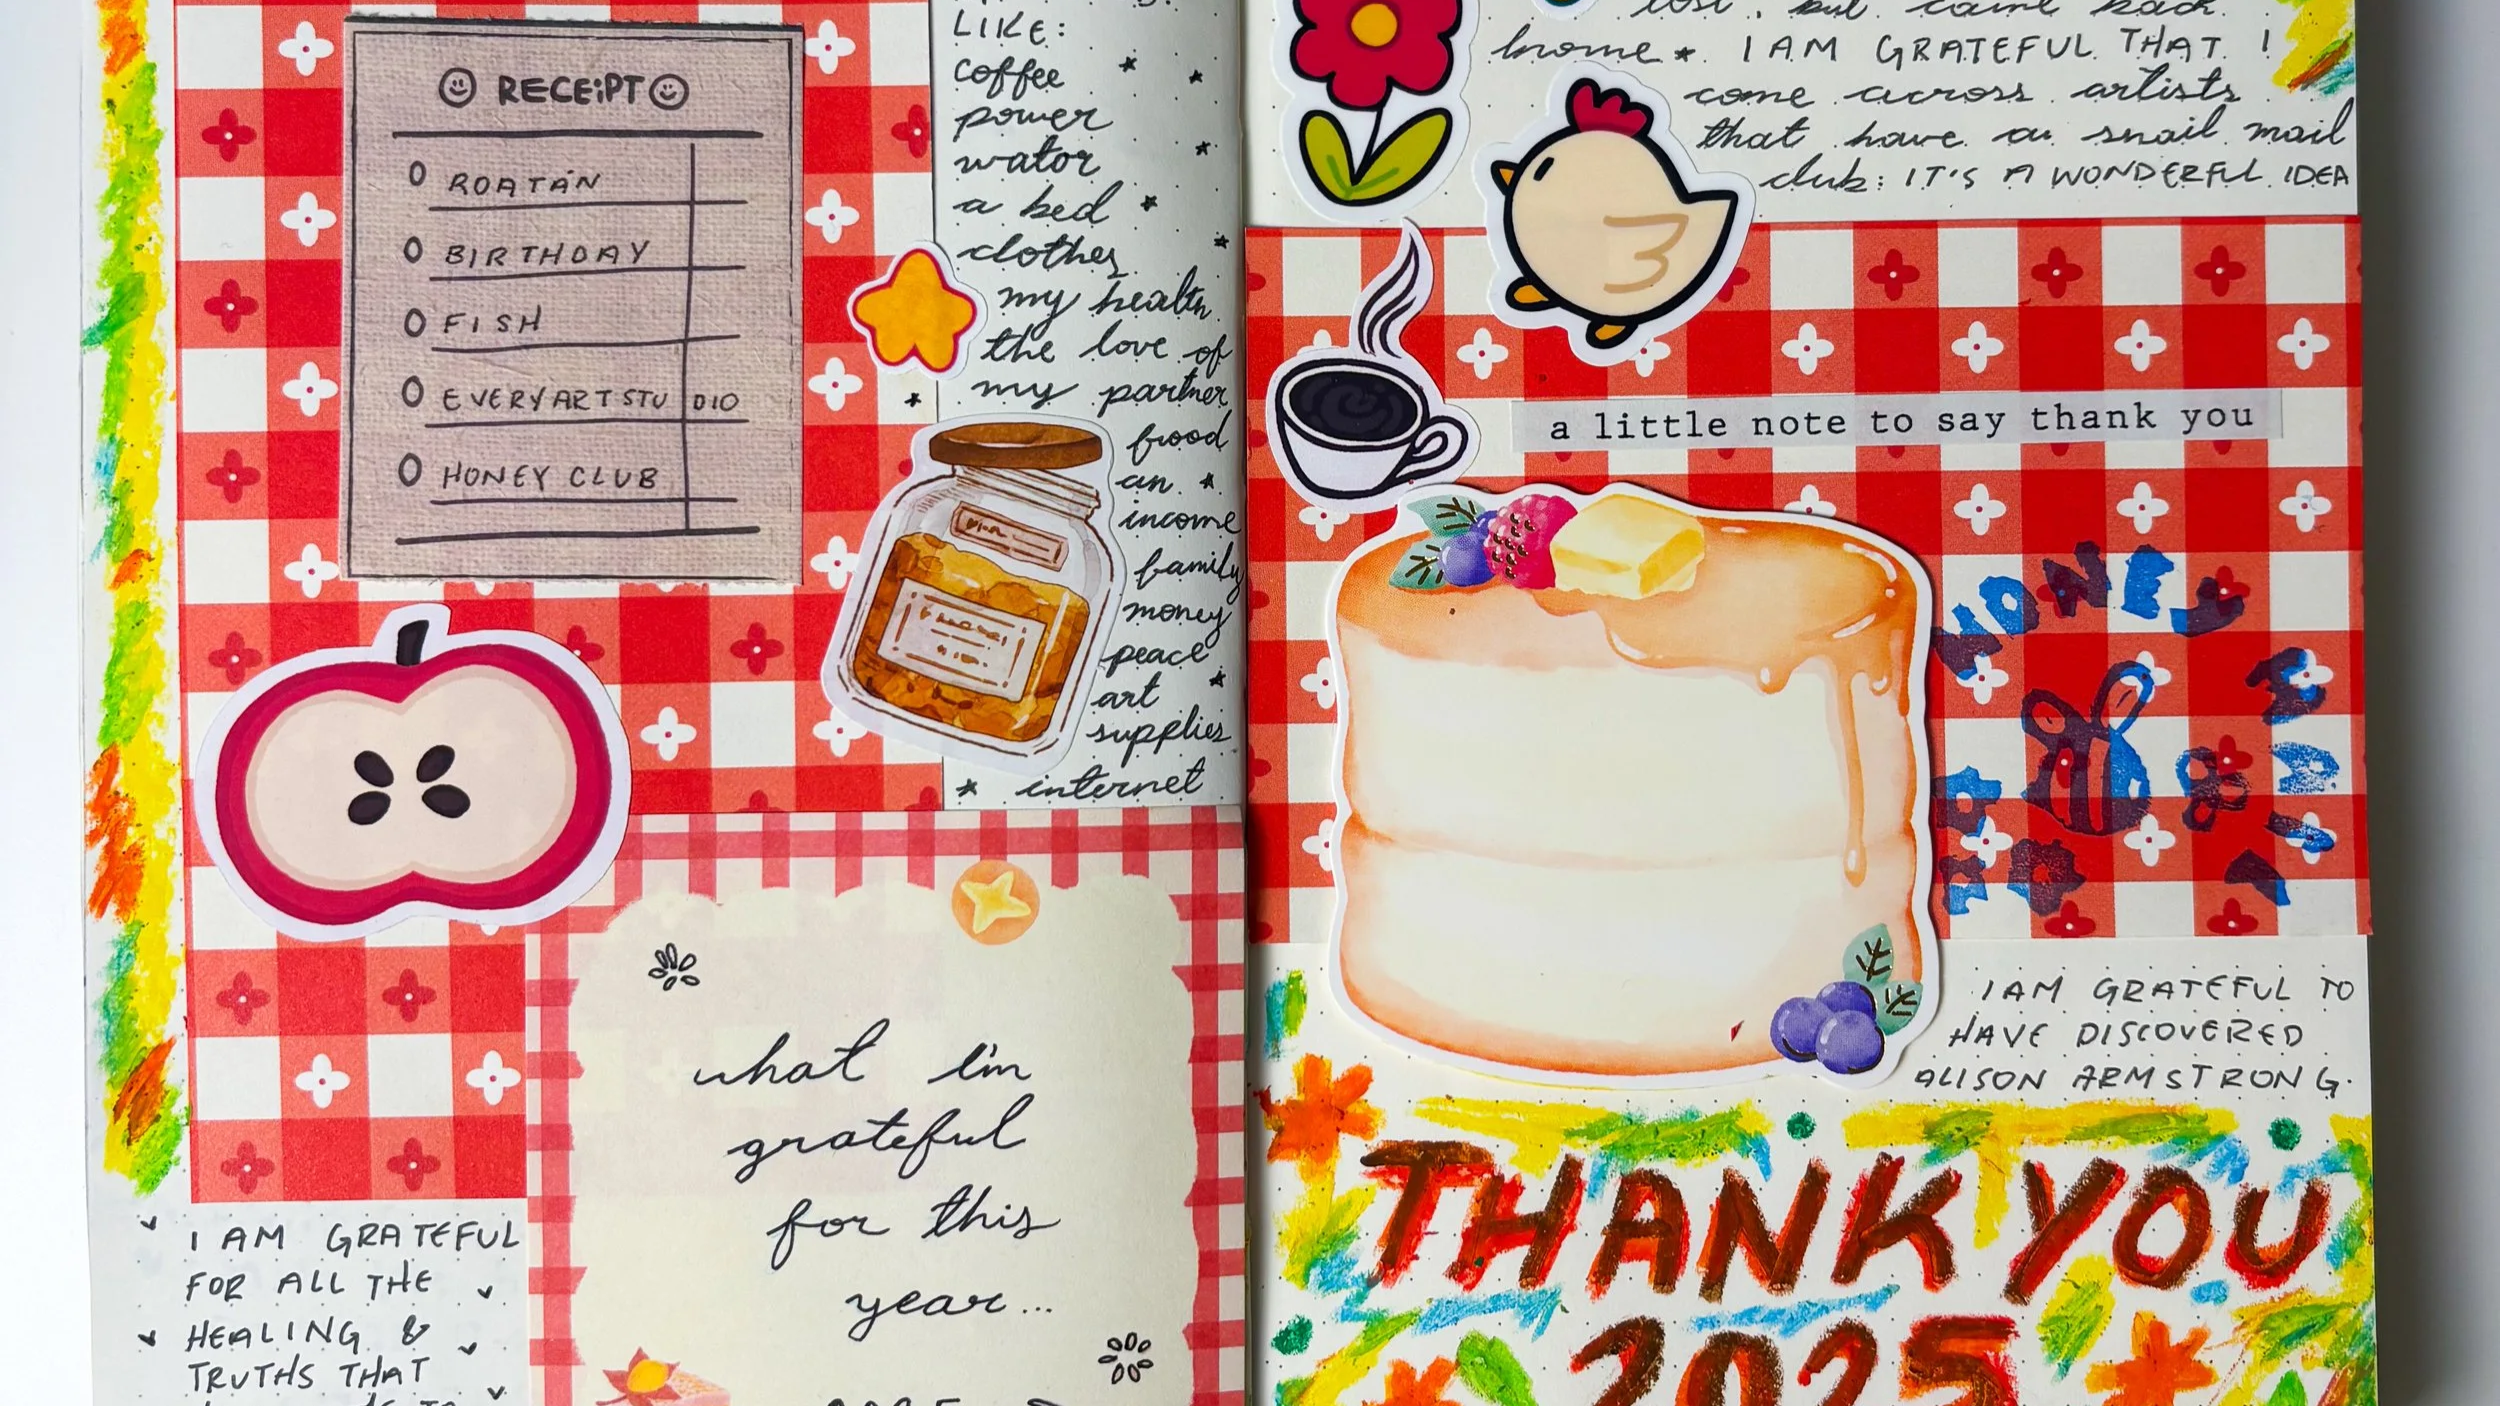 RECEIPT
ROATÁN
BIRTHDAY
FISH
EVERYARTSTUDIO
HONEY CLUB
LIKE:
coffee
power
wator
a bed
clothes
my health
the love of
my partner
food
an
income
family
money
peace
art
supplies
internet
what I'm
grateful
for this
year...
I AM GRATEFUL
FOR ALL THE
HEALING &
TRUTHS THAT
lost, but came back
home * I AM GRATEFUL THAT I
come across artists
that have a snail mail
club: IT'S A WONDERFUL IDEA
a little note to say thank you
HONEY
I AM GRATEFUL TO
HAVE DISCOVERED
ALISON ARMSTRONG.
THANK YOU
2025